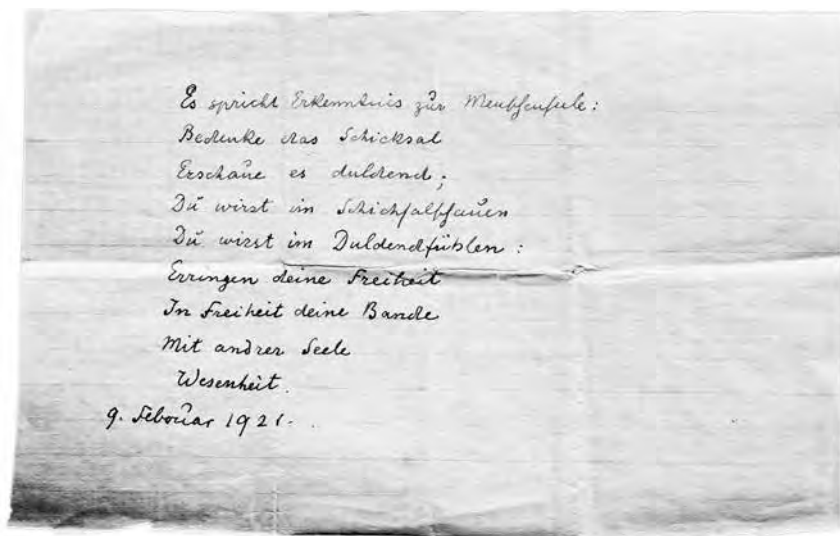 Es spricht Erkenntnis zur Menschenseele:
Bedenke das Schicksal
Erschaue es duldend;
Du wirst im Schicksalschauen
Du wirst im Duldendfühlen:
Erringen deine Freiheit
In Freiheit deine Bande
Mit andrer Seele
Wesenheit.
9. Februar 1921.